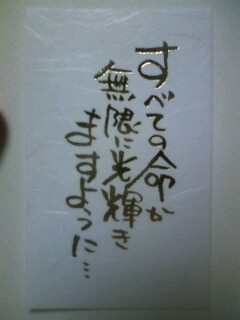 すべての命が
無限に光輝き
ますように…